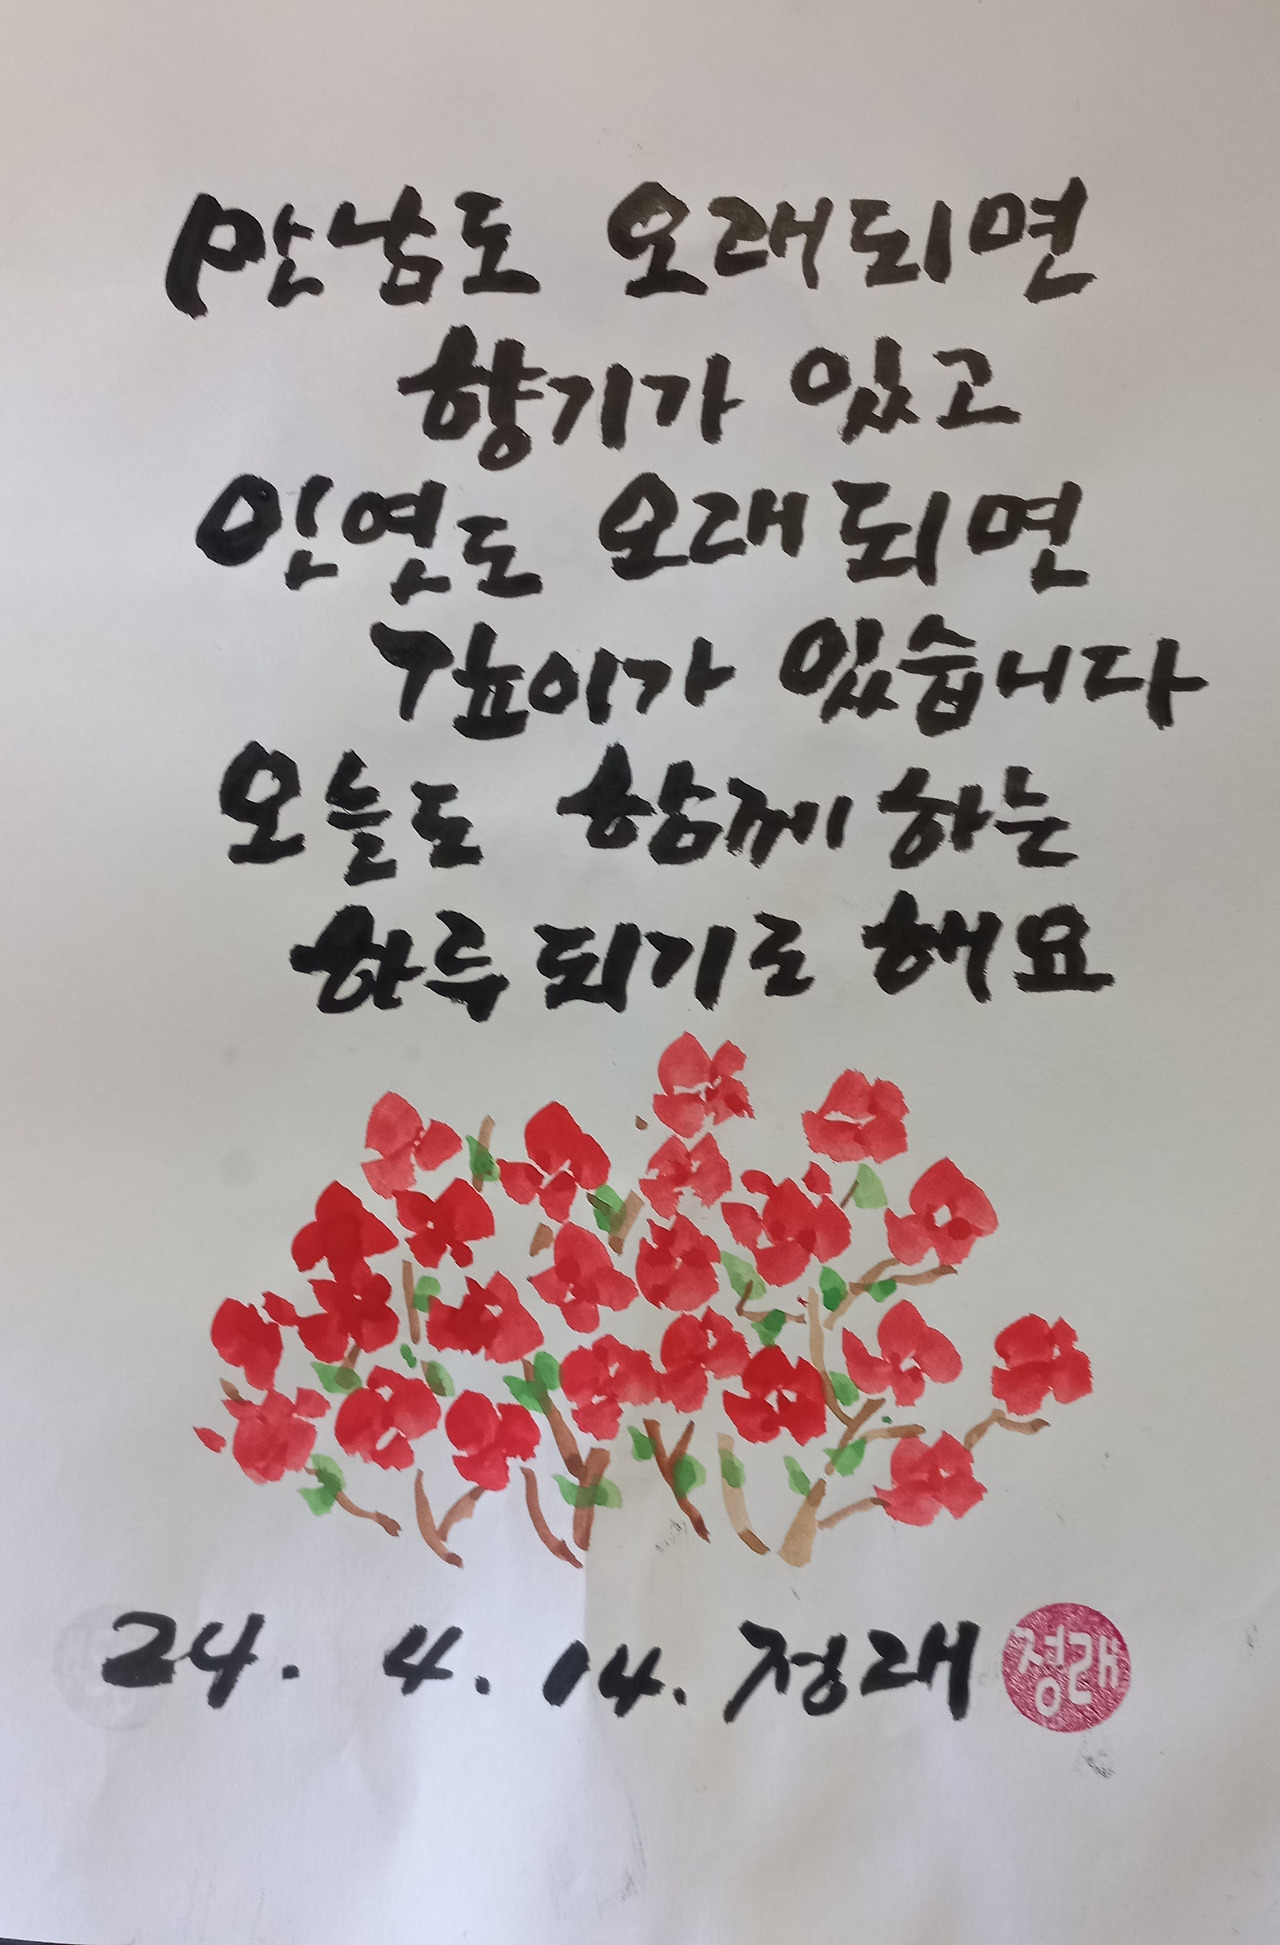 만남도 오래되면
향기가 있고
인연도 오래되면
깊이가 있습니다
오늘도 함께 하는
하루 되기로 해요
24. 4. 14. 정래
정래